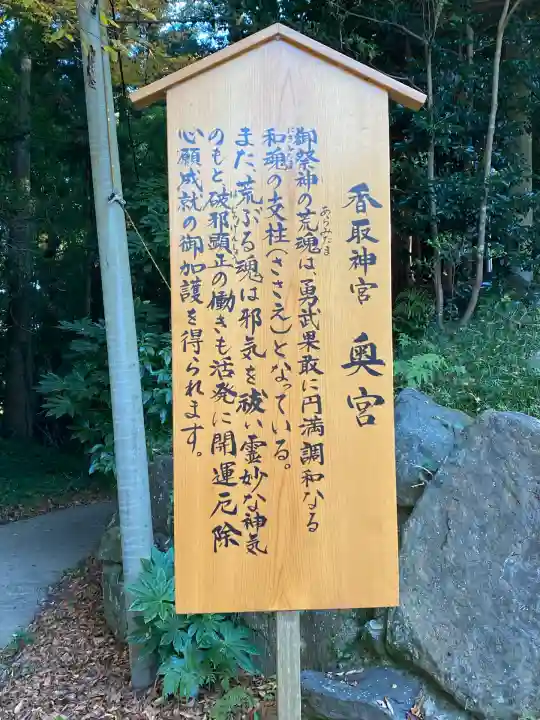 香取神宮 奥宮
御祭神の荒魂は、勇武果敢に円満調和なる
あらみたま
和魂の支柱(ささえ)となっている。
にぎみたま
また、荒ぶる魂は邪気を祓い霊妙な神気
のもと破邪顕正の働きも活発に開運厄除
はじゃけんしょう
心願成就の御加護を得られます。